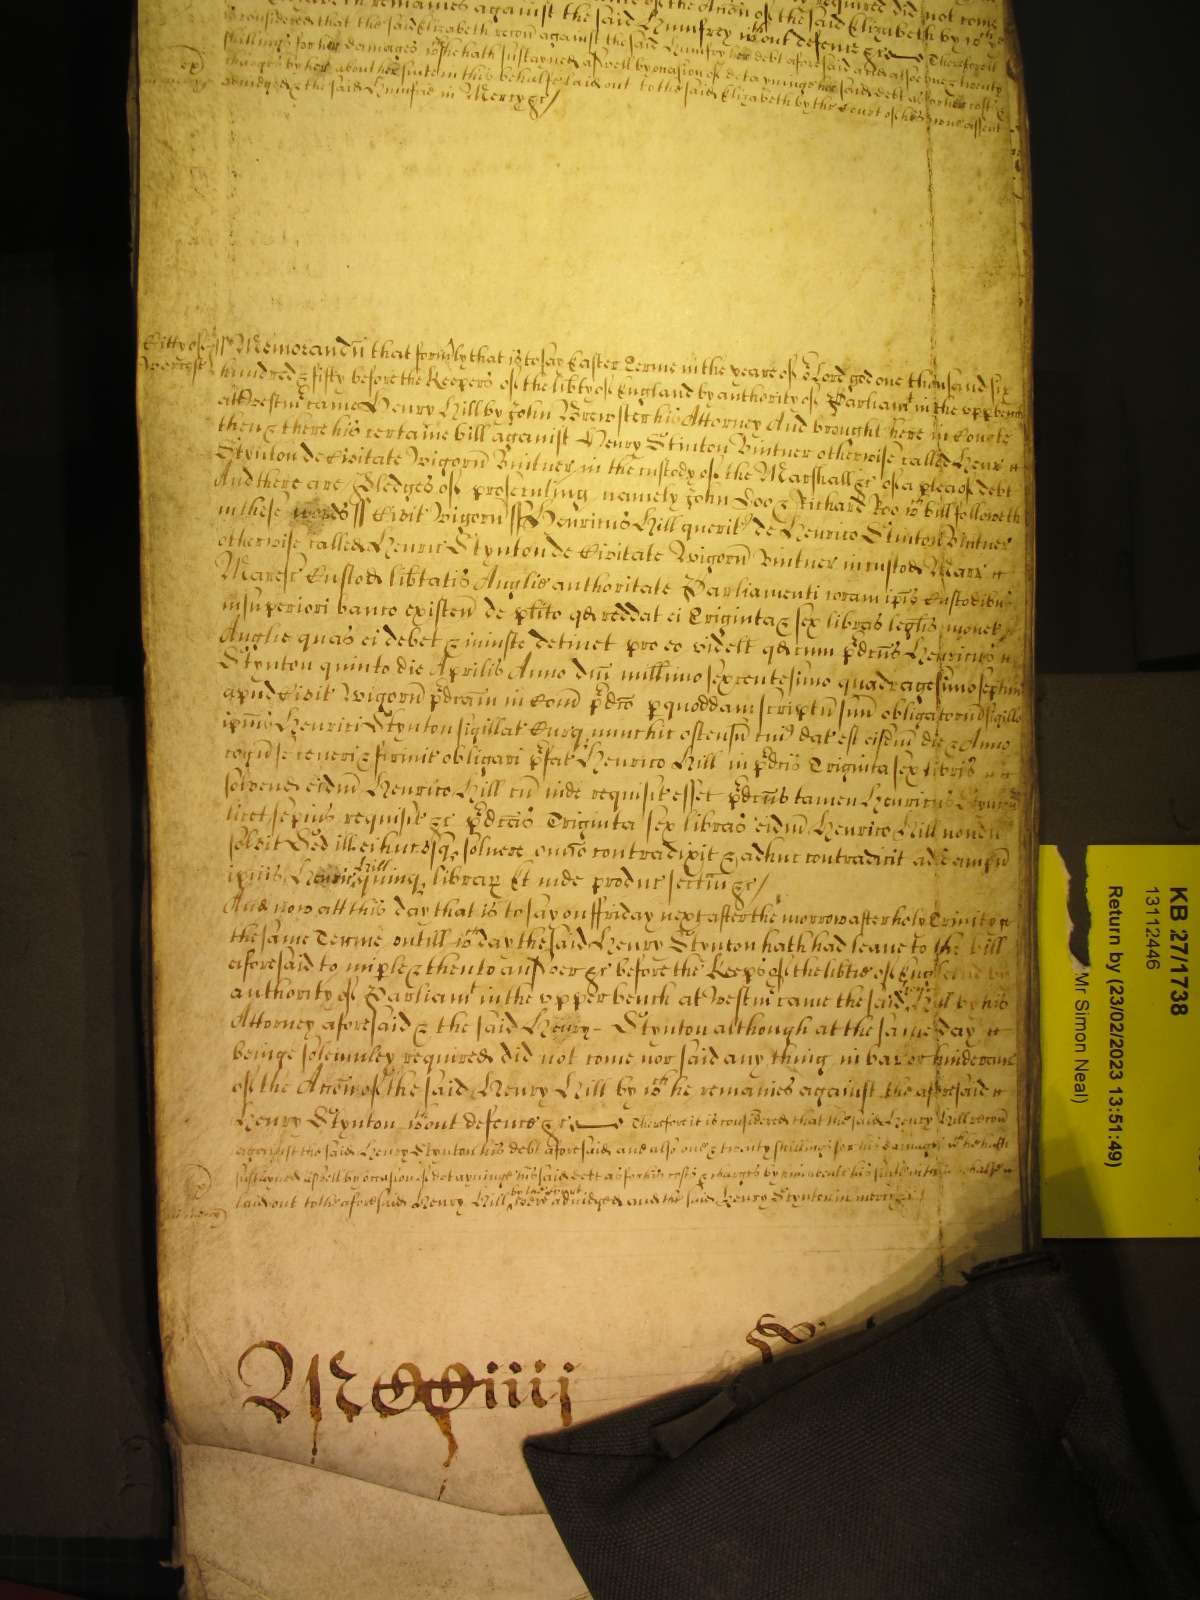 remaines against the said Humfrey wthout defence &c Therefore it
is considered that the said Elizabeth recou against the said Humfry her debt aforesaid and also one & twenty
shillings for her damages wch she hath sustayned aswell by occasion of detayninge her said debt as for her costs &
charges by her about her suite in this behalfe laid out to the said Elizabeth by the Court of her owne assent
adiudged & the said Humfrie in Mercy &c/
Citty of Worcest
ss Memorandu that formly that is to say Easter Terme in the yeare of or Lord god one thousand six
hundred & fifty before the Keepers of the libty of England by authority of Parliamt in the vpp bench
at Westmr came Henry Hill by John Brewster his Attorney And brought here in Courte
then & there his certaine bill against Henry Stinton Vintner otherwise called Henr
Stynton de Civitate Wigorn Vintner in the custody of the Marshall &c of a plea of debt
And there are Pledges of prosecuting namely John Doo & Richard Roo wch bill followeth
in these words ss Civit Wigorn ss Henricus Hill querit de Henrico Stinton Vintner
otherwise called Henric Stynton de Civitate Wigorn Vintner in custod Marr
Maresc Custod libtatis Anglie authoritate Parliamenti coram ipis Custodibus
in superiori banco existen de plito qd reddat ei Triginta & sex libras leglis monet
Anglie quas ei debet & iniuste detinet pro eo videlt qd cum pdcus Henricus
Stynton quinto die Aprilis Anno dni millimo sexcentesimo quadragesimo septimo
apud Civit Wigorn pdcam in Com pdco p quoddam scriptu suu obligatoriu sigillo
ipius Henrici Stynton sigillat Curq nunc hic ostensu cui dat est eisdm die & Anno
cogn se teneri & firmit obligari pfat Henrico Hill in pdcis Triginta sex libris
solvend eidm Henrico Hill cu inde requisit esset pdcus tamen Henricus Stynton
licet sepius requisit &c pdcas Triginta sex libras eidm Henrico Hill nondu
solvit Sed ill ei hucusq solvere omio contradixit & adhuc contradicit ad dampn
ipius Henrici Hill quinq librar Et inde produc sectam &c/
And now att this day that is to say on ffriday next after the morrow after holy Trinity
the same Terme vntill wch day the said Henry Stynton hath had leave to the bill
aforesaid to imple & then to answer &c before the Keeps of the libtie of England by
authority of Parliamt in the vpper bench at Westmr came the said Henry Hill by his
Attorney aforesaid & the said Henry Stynton although at the same day
beinge solemnley required did not come nor said any thing in bar or hinderance
of the Accon of the said Henry Hill by wch he remaines against the aforesaid
Henry Stynton wthout defence &c Therefore it is considered that the said Henry Hill recou
against the said Henry Stynton his debt aforesaid and also one & twenty shillings for his damages wch he hath
sustayned aswell by occasion of detayninge his said debt as for his costs & charges by him about his suite in this behalfe
laid out to the aforesaid Henry Hill by the Court here adiudged and the said Henry Stynton in mercy &c/
in mercy
MCCiiij
KB 27/1738
13112446
Return by (23/02/2023 13:51:49)
Mr Simon Neal)